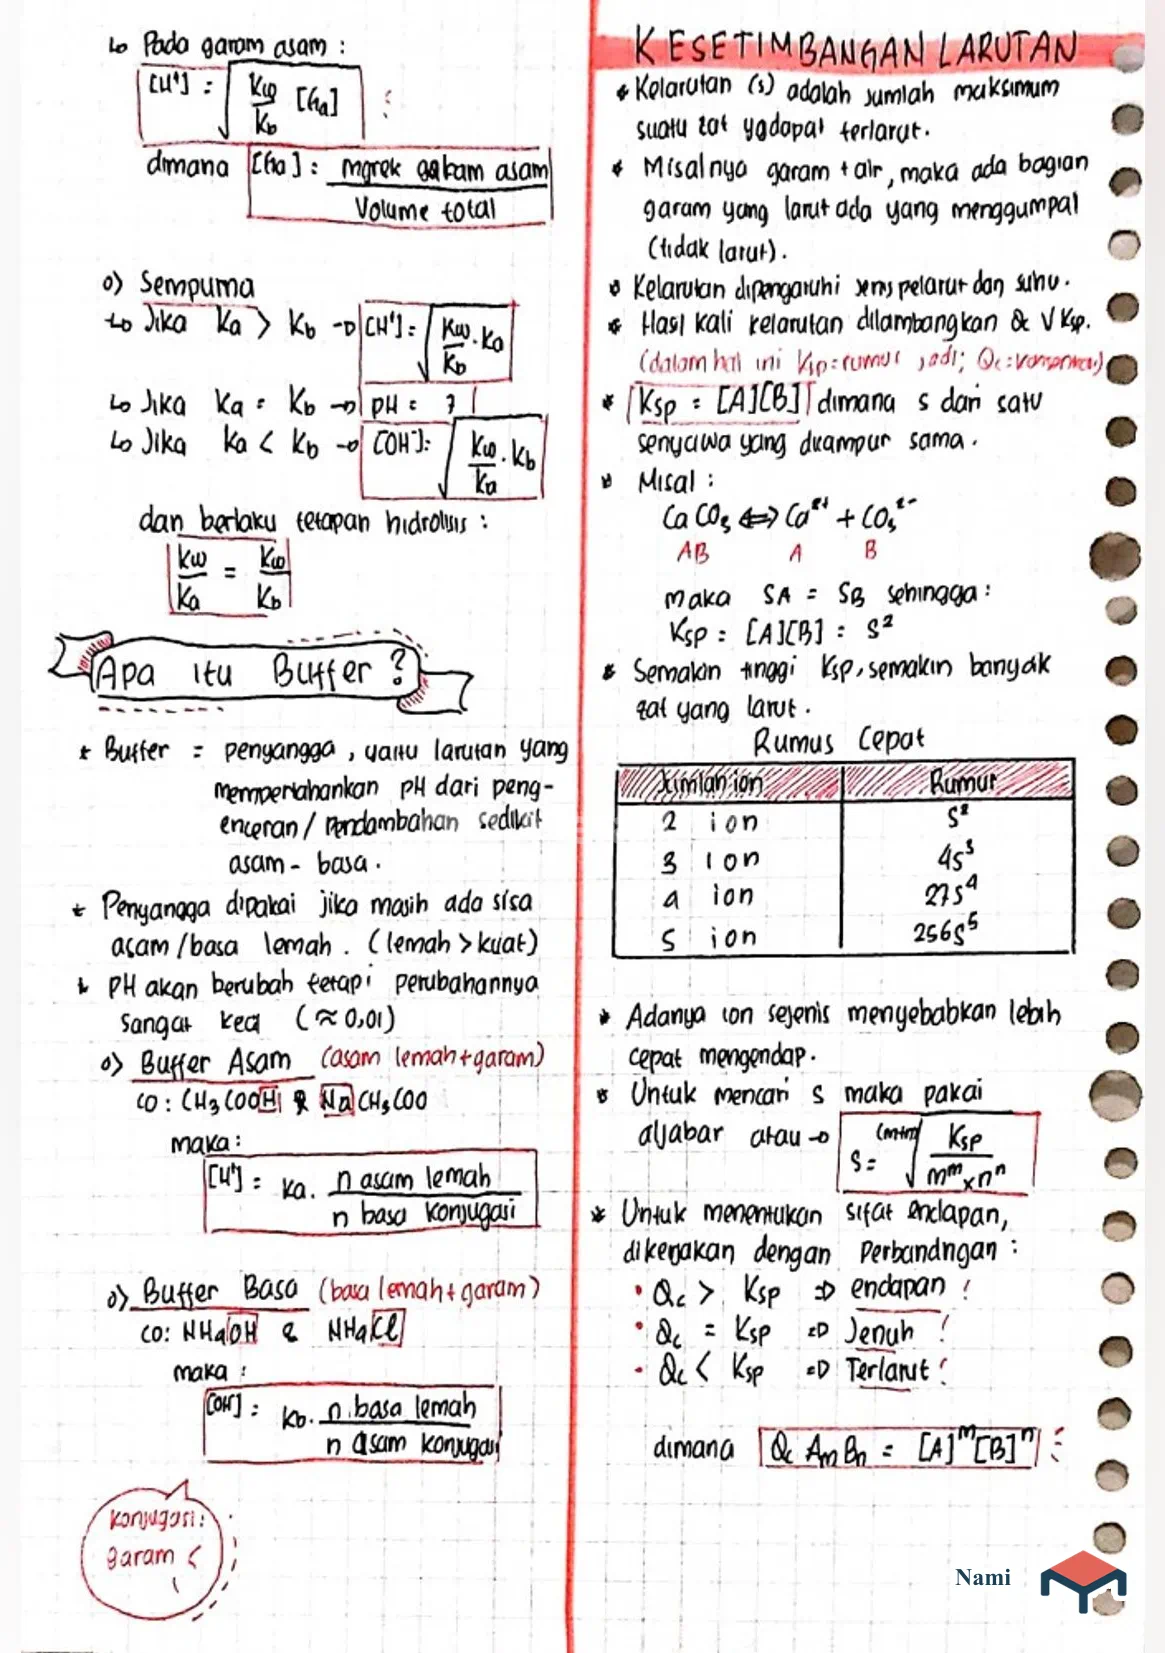 ↳ Pada garam asam :
[H⁺] = √(Kw/Kb [Ga])
dimana [Ga] : mgrek garam asam / Volume total
o) Sempurna
↳ Jika Ka > Kb → [H⁺] = √(Kw/Kb . Ka)
↳ Jika Ka = Kb → pH = 7
↳ Jika Ka < Kb → [OH⁻] = √(Kw/Ka . Kb)
dan berlaku tetapan hidrolisis :
Kw/Ka = Kw/Kb
Apa itu Buffer ?
* Buffer = penyangga, yaitu larutan yang
mempertahankan pH dari peng-
enceran / Penambahan sedikit
asam - basa .
* Penyangga dipakai jika masih ada sisa
asam/basa lemah . (lemah > kuat)
* pH akan berubah tetapi perubahannya
sangat kecil (≈ 0,01)
o) Buffer Asam (asam lemah + garam)
CO : CH₃COOH & NaCH₃COO
maka :
[H⁺] = Ka . n asam lemah / n basa konjugasi
o) Buffer Basa (basa lemah + garam)
CO : NH₄OH & NH₄Cl
maka :
[OH⁻] : Kb . n basa lemah / n asam konjugasi
Konjugasi :
garam
KESETIMBANGAN LARUTAN
* Kelarutan (s) adalah jumlah maksimum
suatu zat yg dapat terlarut.
* Misalnya garam + air, maka ada bagian
garam yang larut ada yang menggumpal
(tidak larut).
* Kelarutan dipengaruhi jenis pelarut dan suhu.
* Hasil kali kelarutan dilambangkan Ksp.
(dalam hal ini Ksp = rumus jadi; Qc :
* Ksp = [A][B] dimana s dari satu
senyawa yang dicampur sama .
* Misal :
CaCO₃ ⇔ Ca²⁺ + CO₃²⁻
AB A B
maka SA = SB sehingga :
Ksp = [A][B] = s²
* Semakin tinggi Ksp, semakin banyak
zat yang larut .
Rumus Cepat
Jumlah ion Rumus
2 ion s²
3 ion 4s³
4 ion 27s⁴
5 ion 256s⁵
* Adanya ion sejenis menyebabkan lebih
cepat mengendap.
* Untuk mencari s maka pakai
aljabar atau → s = ⁽ᵐ⁺ⁿ⁾√(Ksp / mᵐ x nⁿ)
* Untuk menentukan sifat endapan,
dikerjakan dengan Perbandingan :
• Qc > Ksp ⇒ endapan !
• Qc = Ksp ⇒ Jenuh !
• Qc < Ksp ⇒ Terlarut !
dimana Qc AmBn = [A]ᵐ[B]ⁿ
Nami